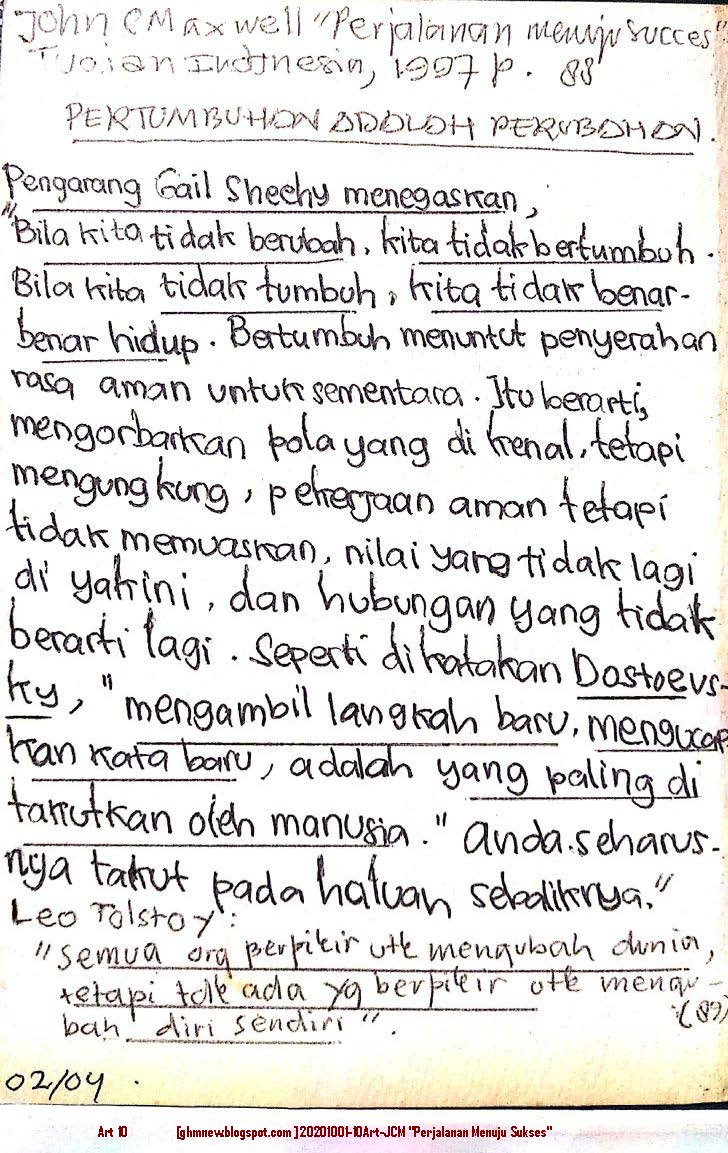 John C Maxwell "Perjalanan menuju Succes"
Indonesia, 1997 p. 88
PERTUMBUHAN ADALAH PERUBAHAN.
Pengarang Gail Sheehy menegaskan,
"Bila kita tidak berubah, kita tidak bertumbuh.
Bila kita tidak tumbuh, kita tidak benar-
benar hidup. Bertumbuh menuntut penyerahan
rasa aman untuk sementara. Itu berarti,
mengorbarkan pola yang di kenal, tetapi
mengungkung, pekerjaan aman tetapi
tidak memuaskan, nilai yang tidak lagi
di yakini, dan hubungan yang tidak
berarti lagi. Seperti dikatakan Dostoevs-
ky, "mengambil langkah baru, mengucap
kan kata baru, adalah yang paling di
takutkan oleh manusia." Anda seharus-
nya takut pada haluan sebaliknya."
Leo Tolstoy:
"Semua org berpikir utk mengubah dunia,
tetapi tdk ada yg berpikir utk mengu-
bah diri sendiri". (89)
02/04.
Art 10 [ghmnew.blogspot.com]20201001-10Art-JCM "Perjalanan Menuju Sukses"